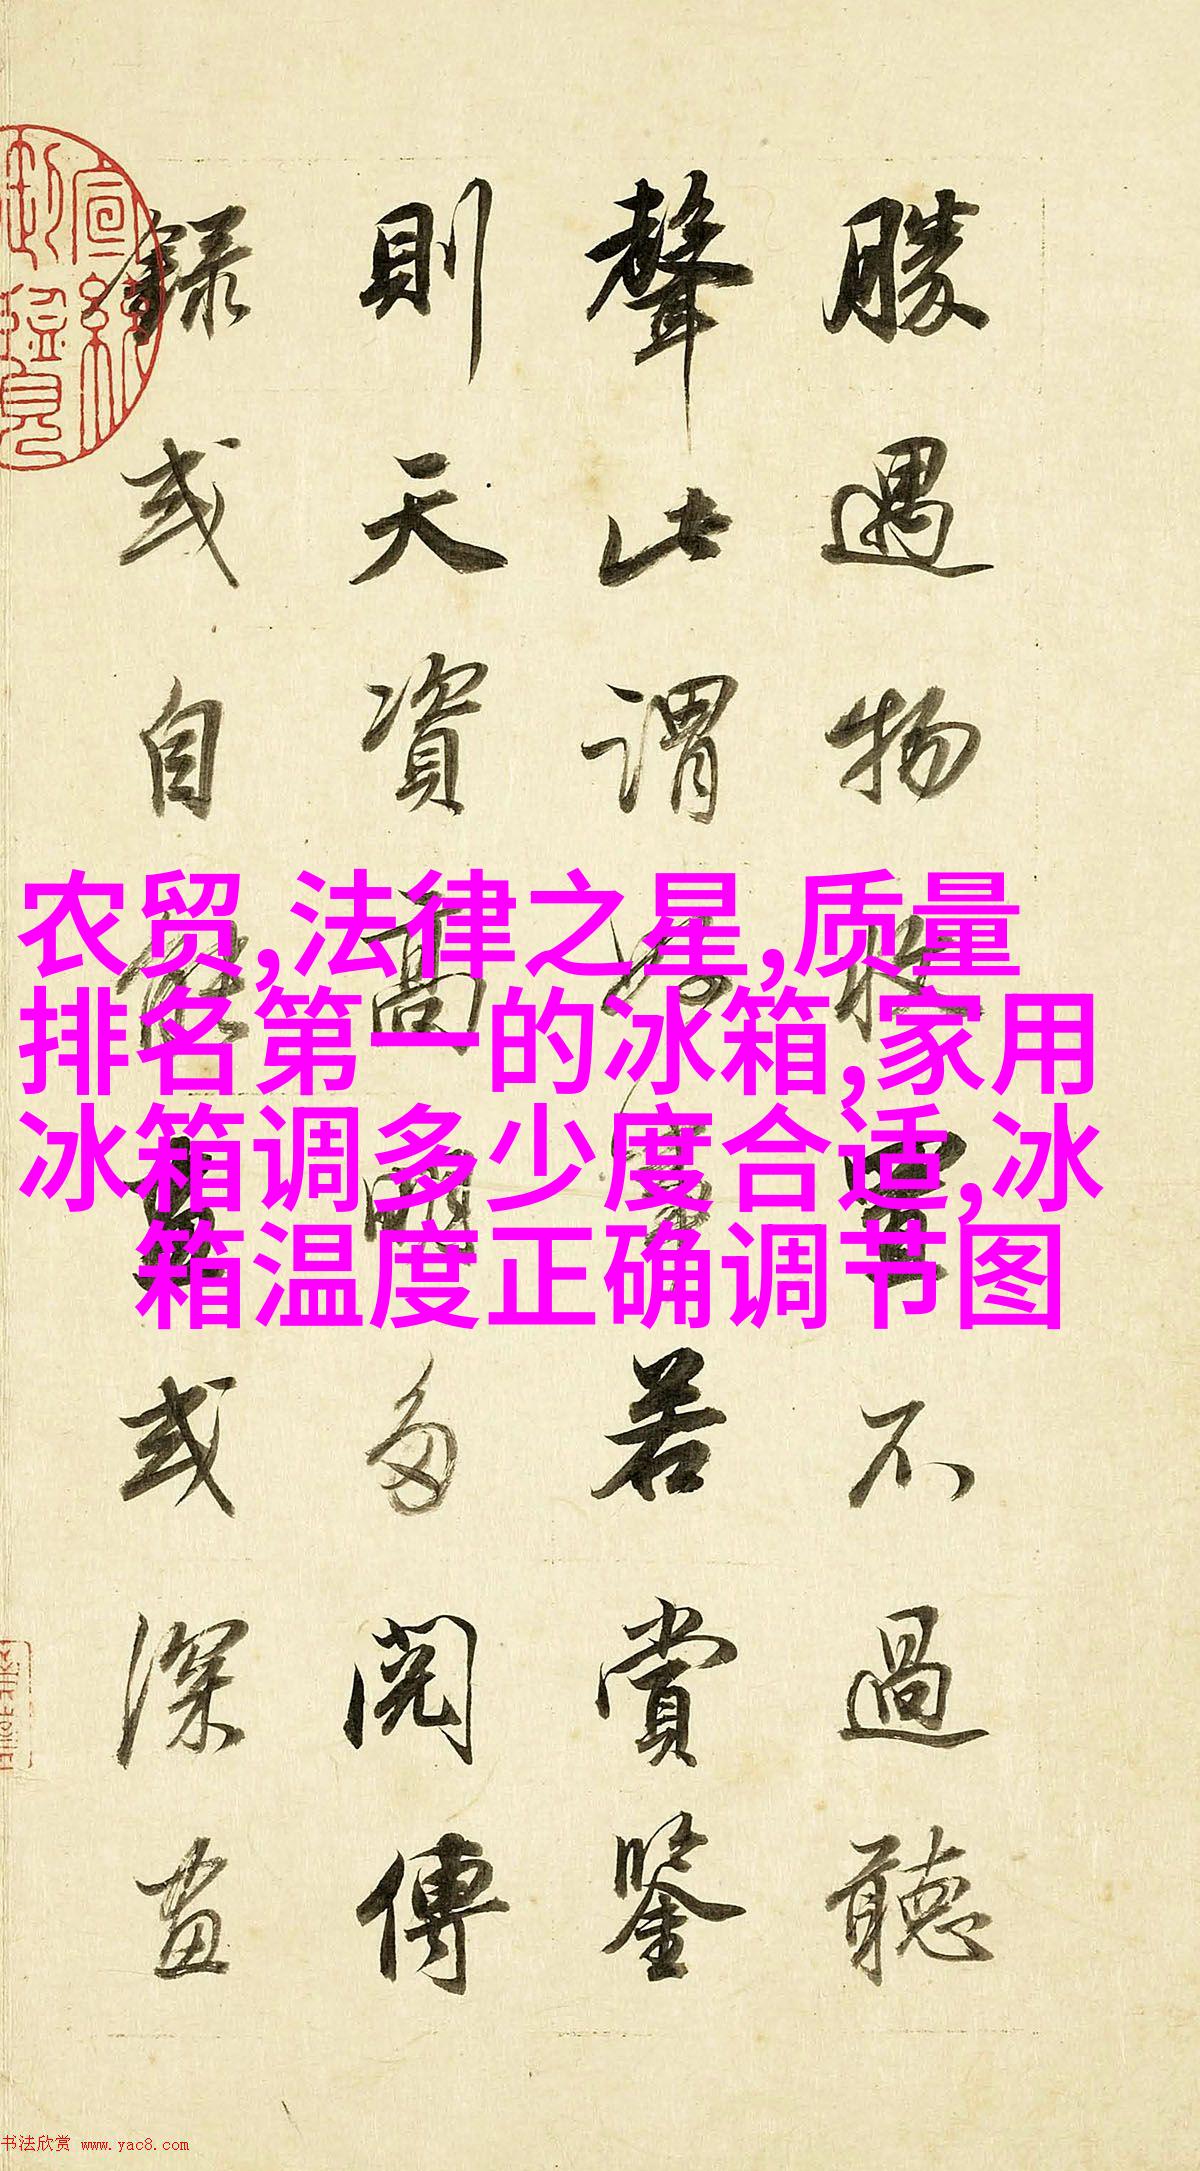 勝遇物收置不過聽
聲此謂好事若賞鑒
則天資高明多閱傳
錄或自能畫或深畫
宣統
农贸,法律之星,质量
排名第一的冰箱,家用
冰箱调多少度合适,冰
箱温度正确调节图
书法欣赏 www.yac8.com